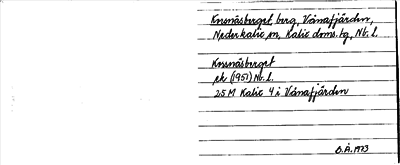 Knenäsberget, berg, Vånafjärden,
Nederkalix sn, Kalix doms. tg, Nb. l.
Knenäsberget
ek (1951) Nb. l.
25M Kalix 4 i Vånafjärden
B.Å. 1973